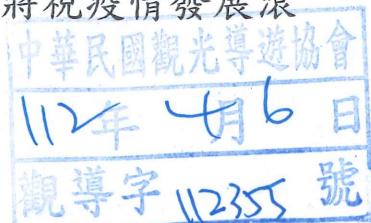 將視疫情發展滾
中華民國觀光導遊協會
112年 4月6日
觀導字 112355 號